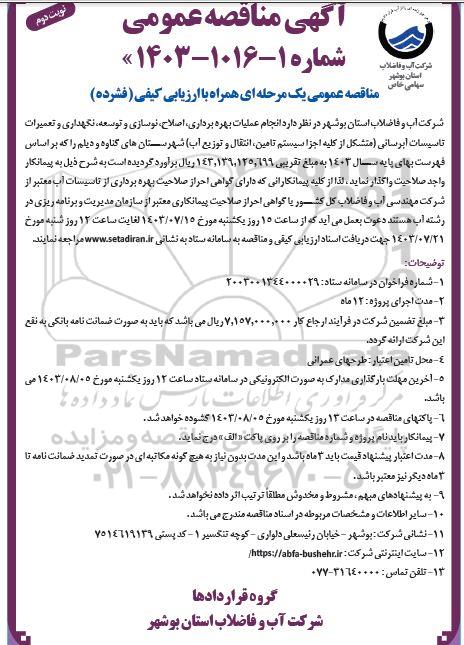 نوبت دوم
آگهی مناقصه عمومی
شماره ۱-۱۰۱۶-۱۴۰۳ »
شرکت آب و فاضلاب
استان بوشهر
سهامی خاص
مناقصه عمومی یک مرحله ای همراه با ارزیابی کیفی (فشرده)
شرکت آب و فاضلاب استان بوشهر در نظر دارد انجام عملیات بهره برداری، اصلاح، نوسازی و توسعه، نگهداری و تعمیرات
تاسیسات آبرسانی (متشکل از کلیه اجزا سیستم تامین، انتقال و توزیع آب) شهرستان های گناوه و دیلم را که بر اساس
فهرست بهای پایه سال ۱۴۰۳ به مبلغ تقریبی ۱۴۳,۱۳۹,۱۲۵,۶۹۹ ریال برآورد گردیده است به شرح ذیل به پیمانکار
واجد صلاحیت واگذار نماید، لذا از کلیه پیمانکارانی که دارای گواهی احراز صلاحیت بهره برداری از تاسیسات آب معتبر از
شرکت مهندسی آب و فاضلاب کل کشور یا گواهی احراز صلاحیت پیمانکاری معتبر از سازمان مدیریت و برنامه ریزی در
رشته آب هستند دعوت بعمل می آید که از ساعت ۱۵ روز یکشنبه مورخ ۱۴۰۳/۰۷/۱۵ لغایت ساعت ۱۲ روز شنبه مورخ
۱۴۰۳/۰۷/۲۱ جهت دریافت اسناد ارزیابی کیفی و مناقصه به سامانه ستاد به نشانی www.setadiran.ir مراجعه نمایند.
توضیحات:
۱- شماره فراخوان در سامانه ستاد: ۲۰۰۳۰۰۱۳۴۴۰۰۰۰۲۹
۲- مدت اجرای پروژه: ۱۲ ماه
۳- مبلغ تضمین شرکت در فرآیند ارجاع کار ۷,۱۵۷,۰۰۰,۰۰۰ ریال می باشد که باید به صورت ضمانت نامه بانکی به نفع
این شرکت ارائه گردد.
۴- محل تامین اعتبار: طرحهای عمرانی
۵- آخرین مهلت بارگذاری مدارک به صورت الکترونیکی در سامانه ستاد ساعت ۱۲ روز یکشنبه مورخ ۱۴۰۳/۰۸/۰۵ می
باشد.
۶- پاکتهای مناقصه در ساعت ۱۳ روز یکشنبه مورخ ۱۴۰۳/۰۸/۰۵ گشوده خواهد شد.
۷- پیمانکار باید نام پروژه و شماره مناقصه را بر روی پاکت «الف» درج نماید.
۸- مدت اعتبار پیشنهاد قیمت باید ۳ ماه باشد و این مدت بدون نیاز به هیچ گونه مکاتبه ای در صورت تمدید ضمانت نامه تا
۳ ماه دیگر نیز معتبر باشد.
۹- به پیشنهادهای مبهم، مشروط و مخدوش مطلقاً ترتیب اثر داده نخواهد شد.
۱۰- سایر اطلاعات و مشخصات مربوطه در اسناد مناقصه مندرج می باشد.
۱۱- نشانی شرکت: بوشهر - خیابان رئیسعلی دلواری - کوچه تنگسیر ۱- کد پستی ۷۵۱۴۶۱۹۱۳۹
۱۲- سایت اینترنتی شرکت: https://abfa-bushehr.ir/
۱۳- تلفن تماس: ۳۱۶۴۰۰۰۰-۰۷۷
گروه قراردادها
شرکت آب و فاضلاب استان بوشهر
ParsNamadData
۰۲۱-۸۸۳۴۹۶۷۰-۵